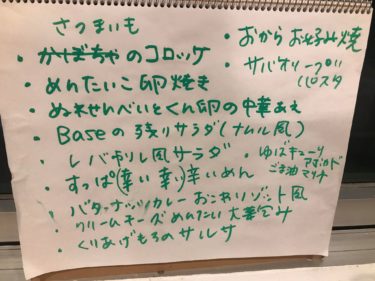 さつまいも
・かぼちゃのコロッケ
・めんたいこ卵焼き
・ぬれせんべいとくん卵の中華あえ
・Baseの残りサラダ(ナムル風)
・レバ刺し風サラダ
・すっぱ(辛い辛い)辛いめん
・バターナッツカレーおこわリゾット風
・クリームチーズめんたい大葉包み
・くりあげもろのサルサ
・おからお好み焼
・サバオリーブ
パスタ
・ゆばキューリ
アボカド
ごま油マリナ